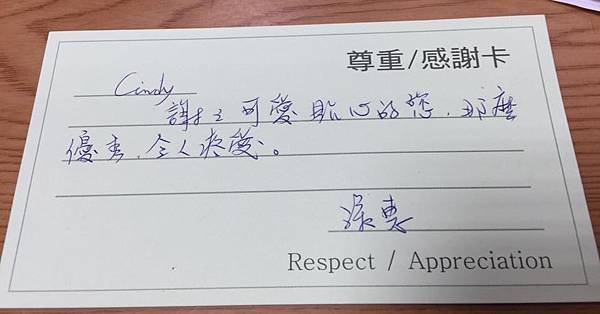 尊重/感謝卡
Cindy
謝謝可愛貼心的您,那麼
優秀,令人疼愛。
Respect / Appreciation